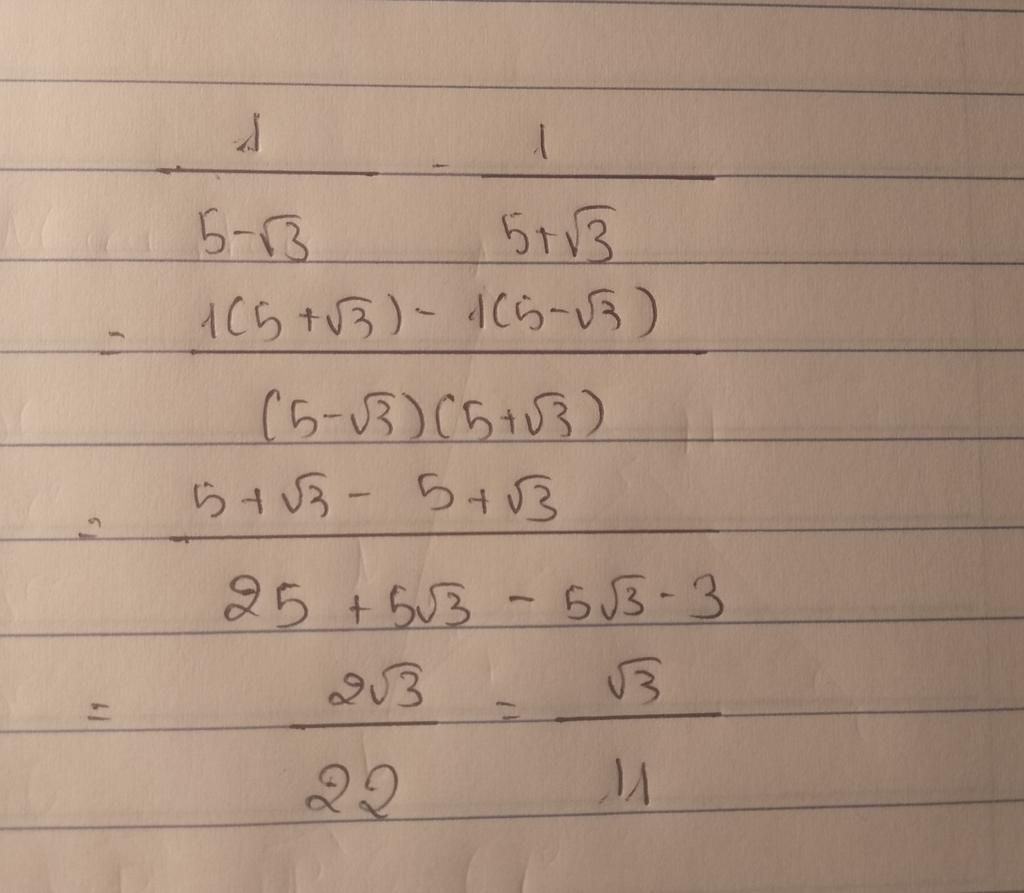 1/(5-√3) - 1/(5+√3)
= (1(5+√3) - 1(5-√3))/((5-√3)(5+√3))
= (5+√3 - 5+√3)/(25 + 5√3 - 5√3 - 3)
= 2√3/22 = √3/11